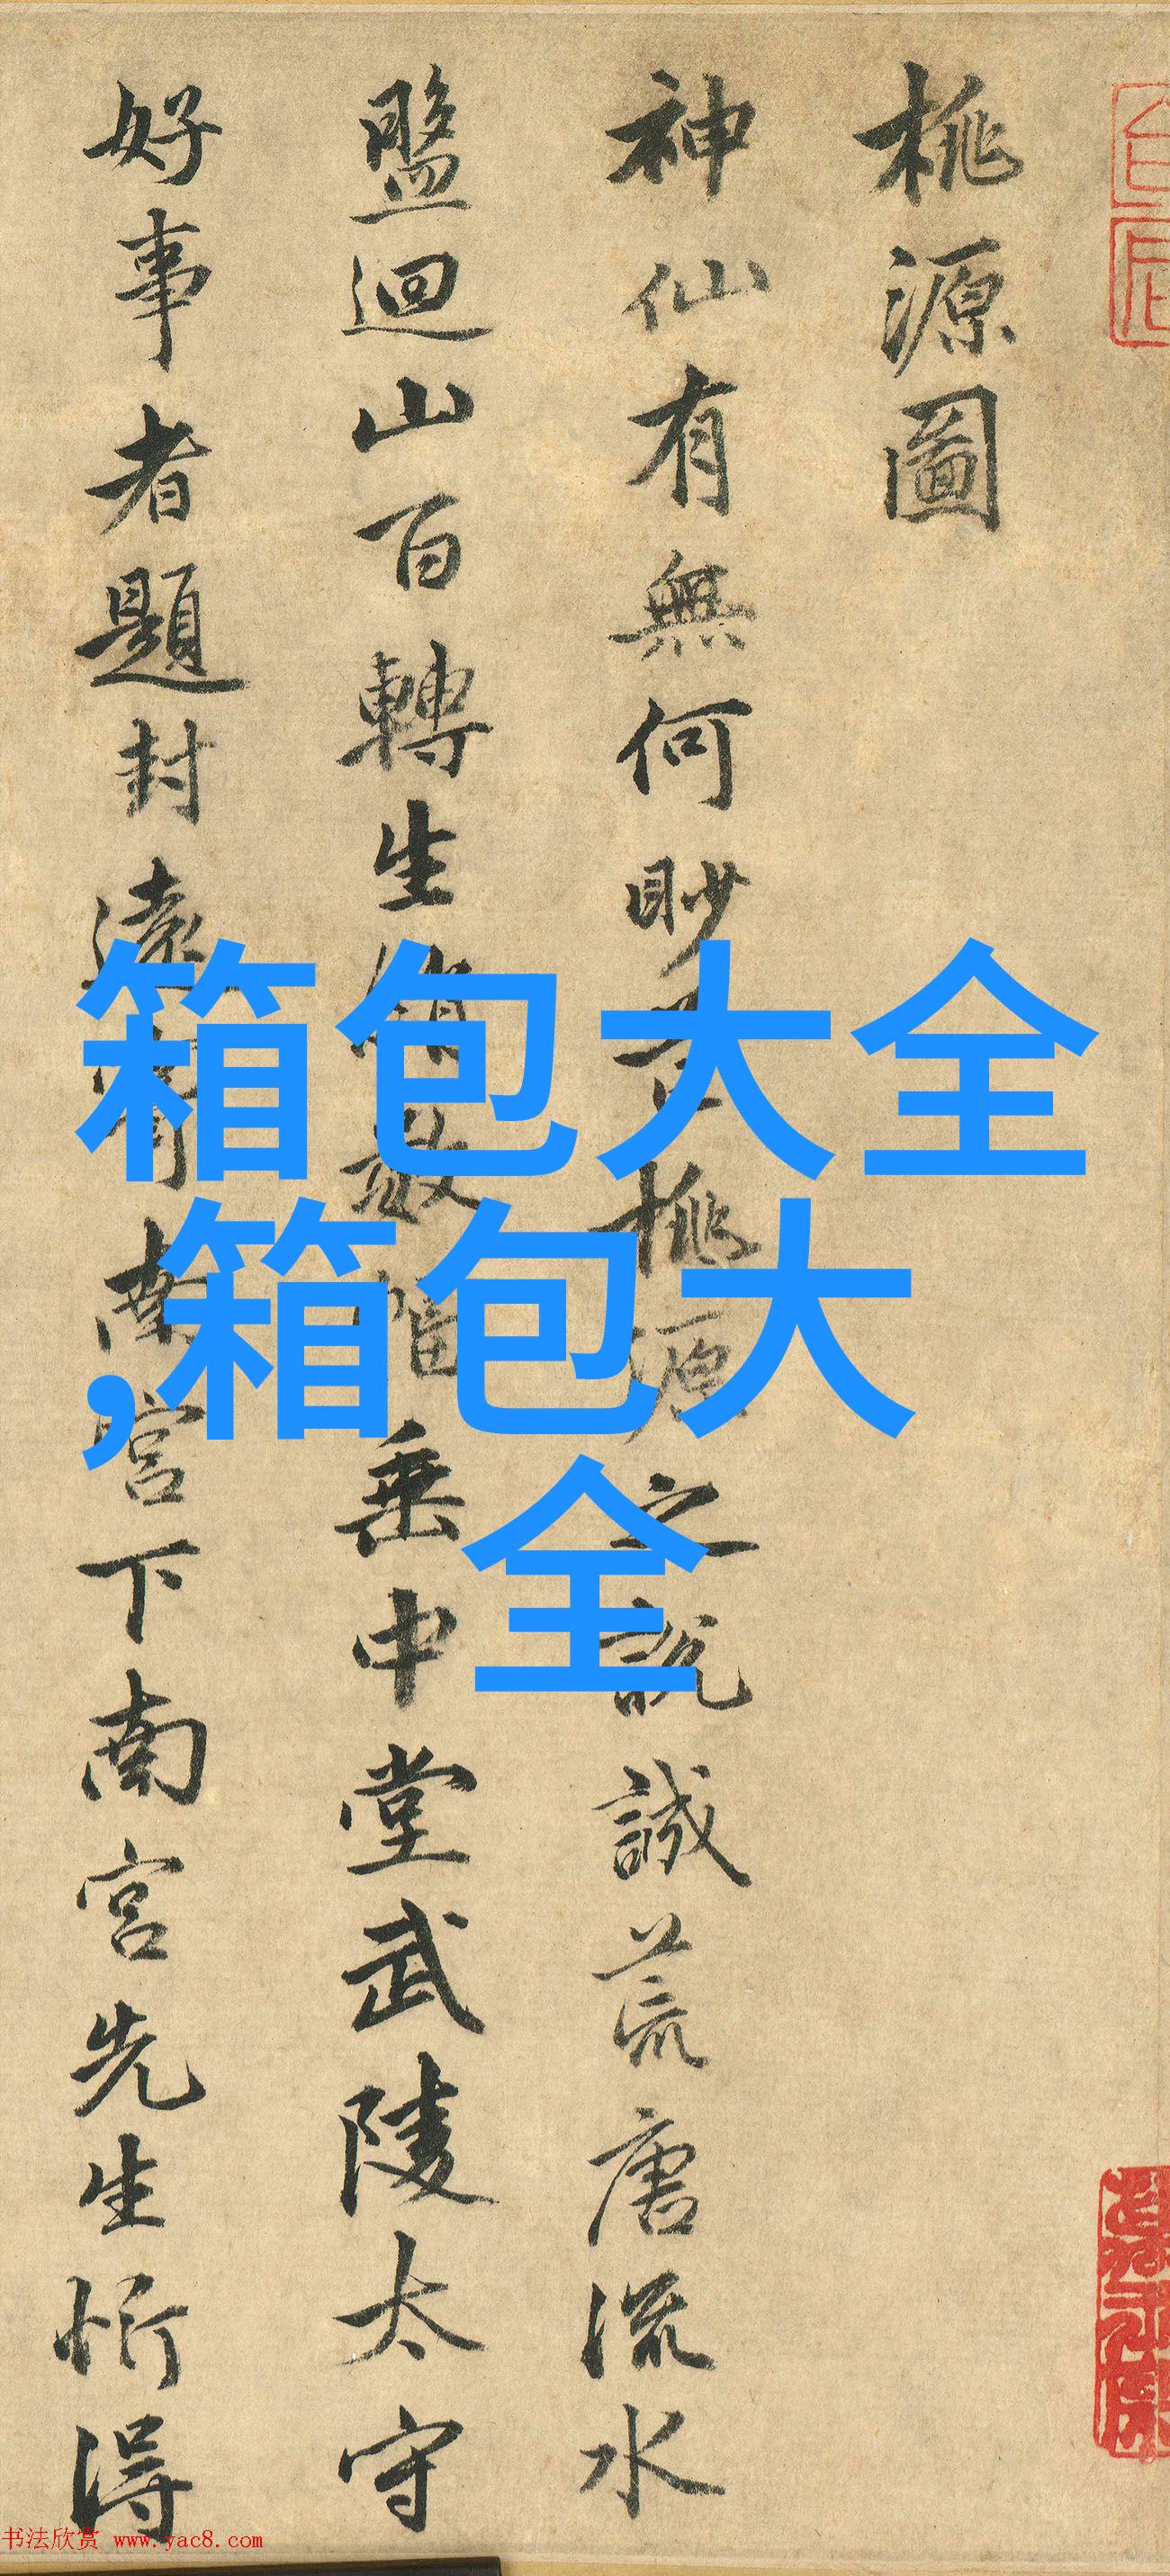 桃源圖
神仙有無何眇桃源之說誠荒唐流水
盤迴山百轉生綃數幅垂中堂武陵太守
好事者題封遠南宮下南宮先生忻得
箱包大全
,箱包大
全
书法欣赏 www.yac8.com